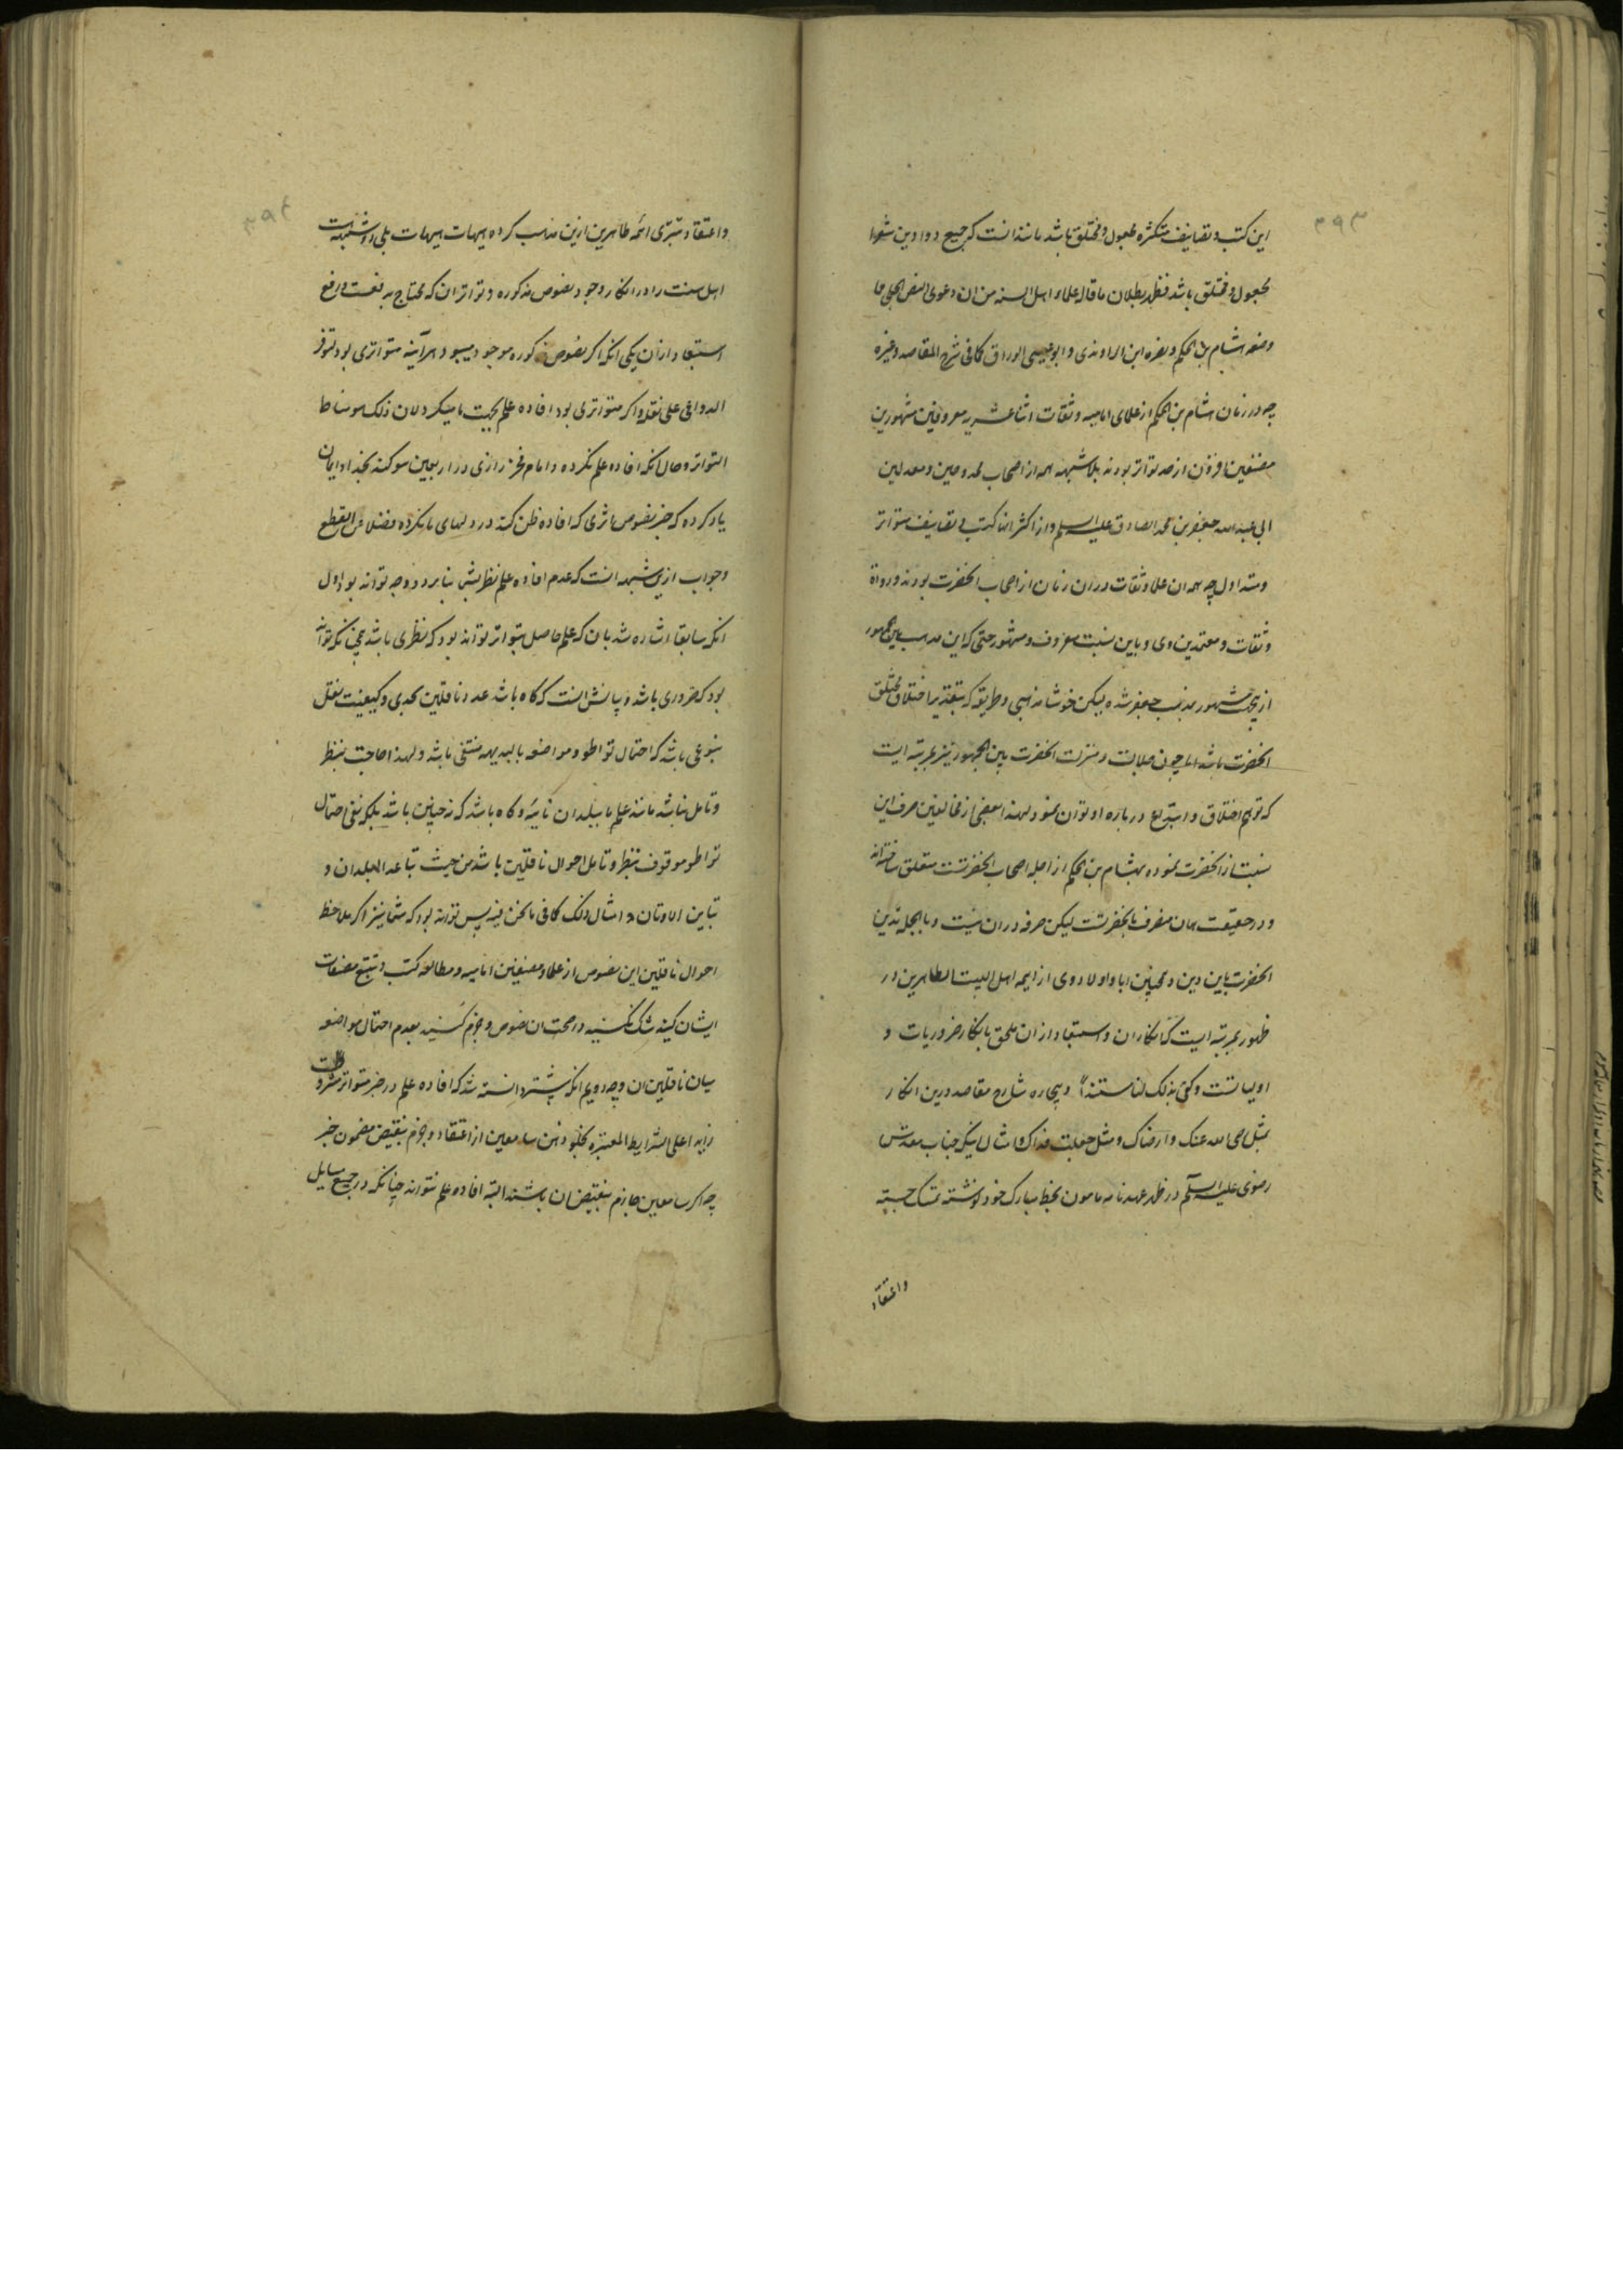 ۳۹۳
این کتب و تصانیف متکثره مجعول و مختلق باشد مانند انست که جمیع دواوین شعرا
مجعول و مختلق باشد فظهر بطلان ما قال علماء اهل السنه من ان دعوی النص الجلی مما
وضعه هشام بن الحکم و نصره ابن الراوندی و ابو عیسی الوراق کما فی شرح المقاصد و غیره
چه در زمان هشام بن الحکم از علمای امامیه و ثقات اثنا عشریه معروفین مشهورین
مصنفین افزون از حد تواتر بودند بلا شبهه همه از اصحاب ممدوحین و معدلین
ابی عبدالله جعفر بن محمد الصادق علیه السلم و از اکثر انها کتب و تصانیف متواتر
و متداول چه همه ان علما و ثقات در ان زمان از اصحاب انحضرت بودند و رواة
و ثقات و معتمدین وی و باین نسبت معروف و مشهور حتی که این مذهب بین الجمهور
ازینجهت مشهور بمذهب جعفر شده لیکن خوشا مذهبی و طریقه که بتقدیر اختلاق مختلق
انحضرت باشد اما چون جلالت و منزلت انحضرت بین الجمهور نیز بمرتبه ایست
که توهم اختلاق و ابتداع درباره او توان نمود لهذا بعضی از مخالفین صرف این
نسبت از انحضرت نموده بهشام بن الحکم از اجله اصحاب انحضرتست متعلق ساخته‌اند
و در حقیقت همان منصرف بانحضرتست لیکن صرفه در ان نیست و بالجمله تدین
انحضرت باین دین و همچنین ابا و اولاد وی از ایمه اهل البیت الطاهرین در
ظهور بمرتبه ایست که انکار ان و استبعاد از ان ملحق بانکار ضروریات و
اولیاتست و کفی بذلک لنا سندا و بیچاره شارح مقاصد درین انکار
بمثل رضی الله عنک و ارضاک و مثل جعلت فداک و امثال اینکه جناب مقدس
رضوی علیه السلم در ظهر عهدنامه مامون بخط مبارک خود نوشته تمسک جسته
واعتقاد
۳۹٤
واعتقاد تبری ائمه طاهرین ازین مذهب کرده هیهات هیهات بلی دو شبهه است
اهل سنت را در انکار وجود نصوص مذکوره و تواتر ان که محتاج به دفعست و رفع
استبعاد از ان یکی انکه اگر نصوص مذکوره موجود میبود هراینه متواتری بود لتوفر
الدواعی علی نقله و اگر متواتر می بود افاده علم بجهت ما میکرد لان ذلک هو مناط
التواتر و حال انکه افاده علم نکرده و امام فخر رازی در اربعین سوگند بخدا و ایمان
یاد کرده که خبر نصوص اثری که افاده ظن کند در دلهای ما نکرده فضلا عن القطع
و جواب ازین شبهه انست که عدم افاده علم نظر بشما بنابر دو وجه تواند بود اول
انکه سابقا اشاره شد بان که علم حاصل بتواتر تواند بود که نظری باشد همچنانکه تواند
بود که ضروری باشد و بیانش انست که گاه باشد عدد ناقلین بحدی و کیفیت نقل
بنوعی باشد که احتمال تواطو و مواضعه بالبدیهه منتفی باشد و لهذا حاجت بنظر
و تامل نباشد مانند علم ما ببلدان نائیه و گاه باشد که نه چنین باشد بلکه نفی احتمال
تواطو موقوف بنظر و تامل احوال ناقلین باشد من حیث تباعد البلدان و
تباین الاوثان و امثال ذلک کما فی ما نحن فیه پس تواند بود که شما نیز اگر ملاحظه
احوال ناقلین این نصوص از علما و مصنفین امامیه و مطالعه کتب و تتبع مصنفات
ایشان کنید شک نکنید در صحت ان نصوص و جزم کنید بعدم احتمال مواضعه
میان ناقلین ان وجه دویم انکه پیشتر دانسته شد که افاده علم در خبر متواتر مشروط است
زایدا علی الشرایط المعتبره بخلو ذهن سامعین از اعتقاد و جزم بنقیض مضمون خبر
چه اگر سامعین جازم بنقیض ان باشند البته افاده علم نتواند چنانکه در جمیع مسایل